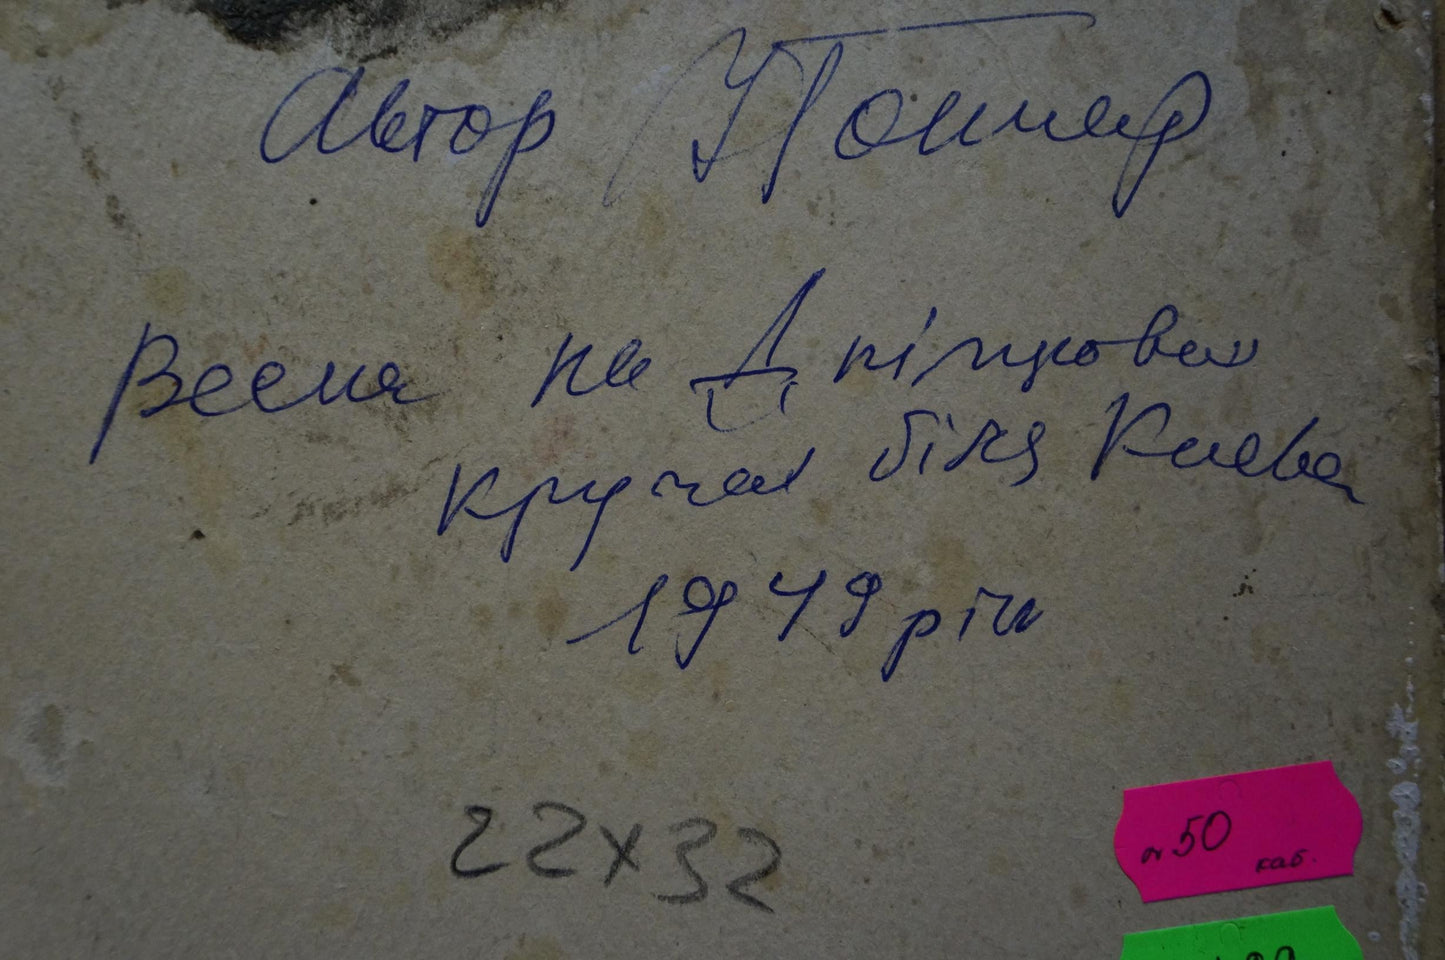 Автор
Весна на Дніпрових
кручах біля Києва
1949 рік
22х32
№50
каб.